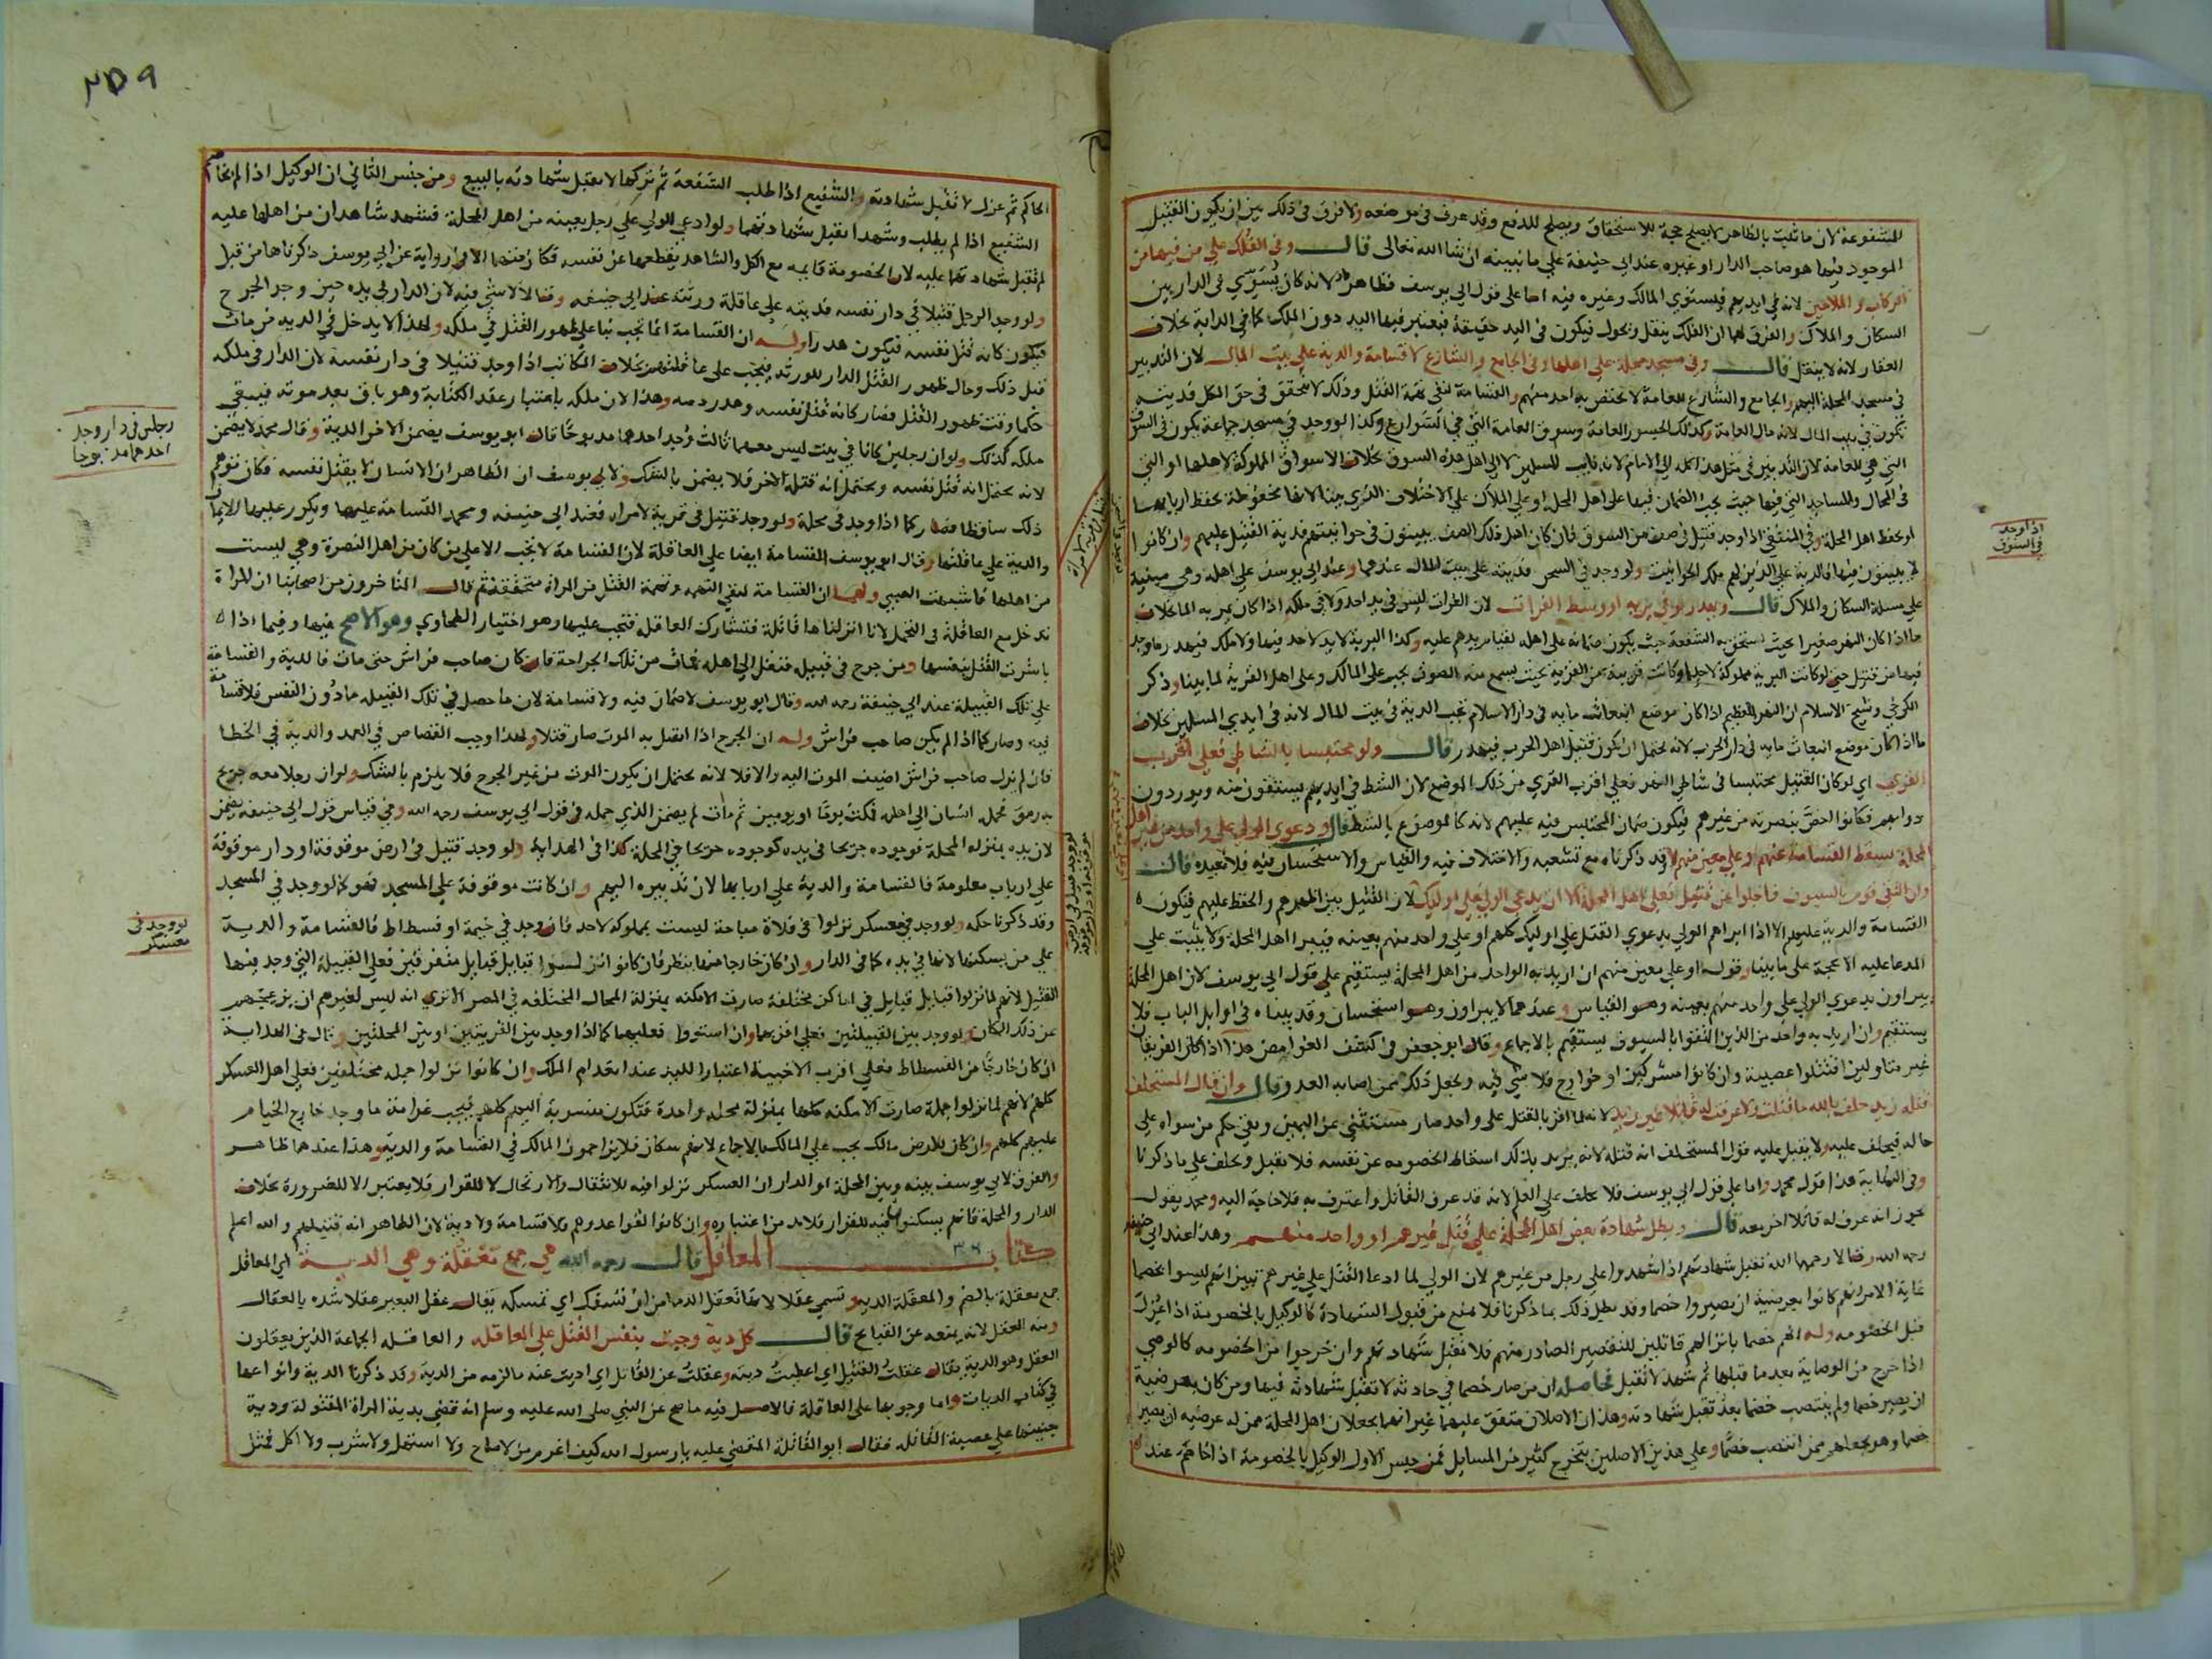 المشفوعة لان ما ثبت بالظاهر لا يصلح حجة للاستحقاق ويصلح للدفع وقد عرف في موضعه ولا فرق في ذلك بين ان يكون القتيل
الموجود فيها هو صاحب الدار او غيره عند ابي حنيفة علي ما نبينه ان شا الله تعالى قال وفي الفلك علي من فيها من
الركاب والملاحين لانه في ايديهم فيستوي المالك وغيره فيه اما على قول ابي يوسف فظاهر لانه كان يسوي في الدار بين
السكان والملاك والفرق لهما ان الفلك ينقل ويحول فيكون في اليد حقيقة فيعتبر فيها اليد دون الملك كما في الدابة بخلاف
العقار لانه لا ينقل قال وفي مسجد محلة على اهلها وفي الجامع والشارع لا قسامة والدية علي بيت المال لان التدبير
في مسجد المحلة اليهم والجامع والشارع للعامة لا يختص به احد منهم والقسامة لنفي تهمة القتل وذلك لا يتحقق في حق الكل فديته
تكون في بيت المال لانه مال العامة وكذلك الجسور العامة وسوق العامة التي في الشوارع وكذا لو وجد في مسجد جماعة يكون في السوق
التي هي للعامة لان التدبير في مثل هذا كله الي الامام لانه نايب للمسلمين لا الى اهل هذه السوق بخلاف الاسواق المملوكة لاهلها او التي
في المحال والمساجد التي فيها حيث يجب الضمان فيها على اهل المحلة او علي الملاك علي الاختلاف الذي بينا لانها محفوظة بحفظ اربابها
او بحفظ اهل المحلة وفي المنتقي اذا وجد قتيل في صف من السوق فان كان اهل ذلك الصف يبيتون في حوانيتهم فدية القتيل عليهم وان كانوا
لا يبيتون فيها فالدية علي الذين لهم ملك الحوانيت ولو وجد في السجن فديته على بيت المال عندهما وعند ابي يوسف علي اهله وهي مبنية
علي مسلة السكان والملاك قال ويهدر لو في برية او وسط الفرات لان الفرات ليس في يد احد ولا في ملكه اذا كان يمر به الما بخلاف
ما اذا كان النهر صغيرا بحيث يستحق به الشفعة حيث يكون ضمانه على اهله لقيام يدهم عليه وكذا البرية لا يد لاحد فيها ولا ملك فيهدر ما وجد
فيها من قتيل حتى لو كانت البرية مملوكة لاحد او كانت قريبة من القرية بحيث يسمع منه الصوت يجب على المالك وعلى اهل القرية لما بينا وذكر
الكرخي وشيخ الاسلام ان النهر العظيم اذا كان موضع انبعاث مايه في دار الاسلام تجب الدية في بيت المال لانه في ايدي المسلمين بخلاف
ما اذا كان موضع انبعاث مايه في دار الحرب لانه يحتمل ان يكون قتيل اهل الحرب فيهدر قال ولو محتبسا بالشاطي فعلي اقرب
القرى اي لو كان القتيل محتبسا في شاطي النهر فعلي اقرب القري من ذلك الموضع لان الشط في ايديهم يستقون منه ويوردون
دوابهم فكانوا اخص بنصرته من غيرهم فيكون ضمان المحتبس فيه عليهم لانه كالموضوع بالشط قال ودعوى الولي علي واحد من غير اهل
المحلة يسقط القسامة عنهم وعلي معين منهم لا وقد ذكرناه مع تشعبه والاختلاف فيه والقياس والاستحسان فيه فلا نعيده قال
وان التقي قوم بالسيوف فاجلوا عن قتيل فعلي اهل المحلة الا ان يدعي الولي علي اوليك لان القتيل بين اظهرهم والحفظ عليهم فيكون
القسامة والدية عليهم الا اذا ابراهم الولي بدعوي القتل علي اوليك كلهم او علي واحد منهم بعينه فيبرا اهل المحلة ولا يثبت علي
المدعا عليه الا بحجة على ما بينا وقوله او علي معين منهم ان اريد به الواحد من اهل المحلة يستقيم علي قول ابي يوسف لان اهل المحلة
يبراون بدعوي الولي علي واحد منهم بعينه وهو القياس وعندهما لا يبراون وهو استحسان وقد بيناه في اوايل الباب فلا
يستقيم وان اريد به واحد من الذين التقوا بالسيوف يستقيم بالاجماع وقال ابو جعفر في كشف الغوامض هذا اذا كان الفريقان
غير متاولين اقتتلوا عصبية وان كانوا مشركين او خوارج فلا شي فيه ويجعل ذلك ممن اصابه العدو قال وان قال المستحلف
قتله زيد حلف بالله ما قتلت ولا عرفت له قاتلا غير زيد لانه لما اقر بالقتل على واحد صار مستثني عن اليمين وبقي حكم من سواه علي
حاله فيحلف عليه ولا يقبل عليه قول المستحلف انه قتله لانه يريد بذلك اسقاط الخصومه عن نفسه فلا يقبل ويحلف علي ما ذكرنا
وفي النهاية هذا قول محمد واما علي قول ابي يوسف فلا يحلف علي العلم لانه قد عرف القاتل واعترف به فلا حاجة اليه ومحمد يقول
يجوز انه عرف له قاتلا اخر معه قال وبطل شهادة بعض اهل المحلة علي قتل غيرهم او واحد منهم وهذا عند ابي حنيفة
رحمه الله وقالا رحمهما الله تقبل شهادتهم اذا شهدوا علي رجل من غيرهم لان الولي لما ادعا القتل علي غيرهم تبين انهم ليسوا بخصما
غاية الامر انهم كانوا بعرضية ان يصيروا خصما وقد بطل ذلك بما ذكرنا فلا يمنع من قبول الشهادة كالوكيل بالخصومة اذا عزل
قبل الخصومه وله انهم خصما بانزالهم قاتلين للتقصير الصادر منهم فلا تقبل شهادتهم وان خرجوا من الخصومه كالوصي
اذا خرج من الوصاية بعد ما قبلها ثم شهد لا تقبل فحاصله ان من صار خصما في حادثه لا تقبل شهادته فيها ومن كان بعرضية
ان يصير خصما ولم ينتصب خصما بعد تقبل شهادته وهذان الاصلان متفق عليهما غير انهما يجعلان اهل المحلة ممن له عرضيه ان يصير
خصما وهو يجعلهم ممن انتصب خصما وعلي هذين الاصلين يتخرج كثير من المسايل فمن جنس الاول الوكيل بالخصومة اذا خاصم عند
اذا وجد
في السوق
٢٥٩
الحاكم ثم عزل لا تقبل شهادته والشفيع اذا طلب الشفعة ثم تركها لا تقبل شهادته بالبيع ومن جنس الثاني ان الوكيل اذا لم يخاصم
الشفيع اذا لم يطلب وشهدا تقبل شهادتهما ولو ادعي الولي علي رجل بعينه من اهل المحلة فشهد شاهدان من اهلها عليه
لم تقبل شهادتهما عليه لان الخصومة قايمه مع الكل والشاهد يقطعها عن نفسه فكان متهما الا في رواية عن ابي يوسف ذكرناها من قبل
ولو وجد الرجل قتيلا في دار نفسه فديته علي عاقلة ورثته عند ابي حنيفه وقالا لا شي فيه لان الدار في يده حين وجد الجرح
فيكون كانه قتل نفسه فيكون هدرا وله ان القسامة انما تجب بنا علي ظهور القتل في ملكه ولهذا لا يدخل في الدية من مات
قبل ذلك وحال ظهور القتل الدار للورثه فتجب على عاقلتهم بخلاف المكاتب اذا وجد قتيلا في دار نفسه لان الدار في ملكه
حكما وقت ظهور القتل فصار كانه قتل نفسه وهدر دمه وهذا لان ملكه باعتبار عقد الكتابة وهو باق بعد موته فيبقى
ملكه كذلك ولو ان رجلين كانا في بيت ليس معهما ثالث وجد احدهما مذبوحا قال ابو يوسف يضمن الاخر الدية وقال محمد لا يضمن
لانه يحتمل انه قتل نفسه ويحتمل انه قتله الاخر فلا يضمن بالشك ولابي يوسف ان الظاهر ان الانسان لا يقتل نفسه فكان توهم
ذلك ساقطا فصار كما اذا وجد في محلة ولو وجد قتيل في قرية لامراه فعند ابي حنيفه ومحمد القسامة عليها ويكرر عليها الايمان
والدية علي عاقلتها وقال ابو يوسف القسامة ايضا علي العاقلة لان القسامة لا تجب الا علي من كان من اهل النصرة وهي ليست
من اهلها فاشبهت الصبي ولهما ان القسامة لنفي التهمه وتهمة القتل من المراة متحققة ثم قال المتاخرون من اصحابنا ان المراة
تدخل مع العاقلة في التحمل لانا انزلناها قاتلة فتشارك العاقله فتجب عليها وهو اختيار الطحاوي وهو الاصح فيها وفيما اذا
باشرت القتل بنفسها ومن جرح في قبيله فنقل الى اهله فمات من تلك الجراحة فان كان صاحب فراش حتى مات فالدية والقسامة
علي تلك القبيلة عند ابي حنيفة رحمه الله وقال ابو يوسف لا ضمان فيه ولا قسامة لان ما حصل في تلك القبيله ما دون النفس فلا قسامة
فيه وصار كما اذا لم يكن صاحب فراش وله ان الجرح اذا اتصل به الموت صار قتلا ولهذا وجب القصاص في العمد والدية في الخطا
فان لم يزل صاحب فراش اضيف الموت اليه والا فلا لانه يحتمل ان يكون الموت من غير الجرح فلا يلزم بالشك ولو ان رجلا معه جريح
به رمق فحمله انسان الى اهله فمكث يوما او يومين ثم مات لم يضمن الذي حمله في قول ابي يوسف رحمه الله وفي قياس قول ابي حنيفه يضمن
لان يده بمنزله المحلة فوجوده جريحا في يده كوجوده جريحا في المحلة كذا في الهداية ولو وجد قتيل في ارض موقوفة او دار موقوفة
علي ارباب معلومة فالقسامة والدية علي اربابها لان تدبيره اليهم وان كانت موقوفة علي المسجد فهو كما لو وجد في المسجد
وقد ذكرنا حكمه ولو وجد في معسكر نزلوا في فلاة مباحة ليست بمملوكة لاحد فان وجد في خيمة او فسطاط فالقسامة والدية
علي من يسكنها لانها في يده كما في الدار وان كان خارجا منها ينظر فان كانوا نزلوا قبايل قبايل متفرقين فعلى القبيلة التي وجد فيها
القتيل لانهم لما نزلوا قبايل قبايل في اماكن مختلفة صارت الامكنه بمنزلة المحال المختلفه في المصر الا تري انه ليس لغيرهم ان يزعجهم
عن ذلك المكان ولو وجد بين القبيلتين فعلي اقربهما وان استووا فعليهما كما اذا وجد بين القريتين او بين المحلتين وقال في الهداية
ان كان خارجا من الفسطاط فعلي اقرب الاخبية اعتبارا لليد عند انعدام الملك وان كانوا نزلوا جمله مختلطين فعلي اهل العسكر
كلهم لانهم لما نزلوا جملة صارت الامكنه كلها بمنزلة محلة واحدة فتكون منسوبة اليهم كلهم فتجب غرامة ما وجد خارج الخيام
عليهم كلهم وان كان للارض مالك يجب علي المالك بالاجماع لانهم سكان فلا يزاحمون المالك في القسامة والدية وهذا عندهما ظاهر
والفرق لابي يوسف بينه وبين المحلة او الدار ان العسكر نزلوا فيه للانتقال والارتحال لا للقرار فلا يعتبر الا للضرورة بخلاف
الدار والمحلة فانهم يسكنون فيه للقرار فلا بد من اعتباره وان كانوا لقوا عدوهم فلا قسامة ولا دية لان الظاهر انه قتيلهم والله اعلم
كتاب المعاقل قال رحمه الله هي جمع معقلة وهي الدية اي المعاقل
جمع معقلة بالضم والمعقلة الدية وتسمي عقلا لانها تعقل الدما من ان تسفك اي تمسكه يقال عقل البعير عقلا شده بالعقال
ومنه العقل لانه يمنعه عن القبايح قال كل دية وجبت بنفس القتل علي العاقله والعاقله الجماعة الذين يعقلون
العقل وهو الدية يقال عقلت القتيل اي اعطيت ديته وعقلت عن القاتل اي اديت عنه ما لزمه من الدية وقد ذكرنا الدية وانواعها
في كتاب الديات واما وجوبها على العاقلة فالاصل فيه ما صح عن النبي صلى الله عليه وسلم انه قضي بدية المراة المقتولة ودية
جنينها علي عصبة القاتله فقال ابو القاتلة المقضي عليه يا رسول الله كيف اغرم من لا صاح ولا استهل ولا شرب ولا اكل فمثل
رجلين في دار وجد
احدهما مذبوحا
لو وجد في
معسكر